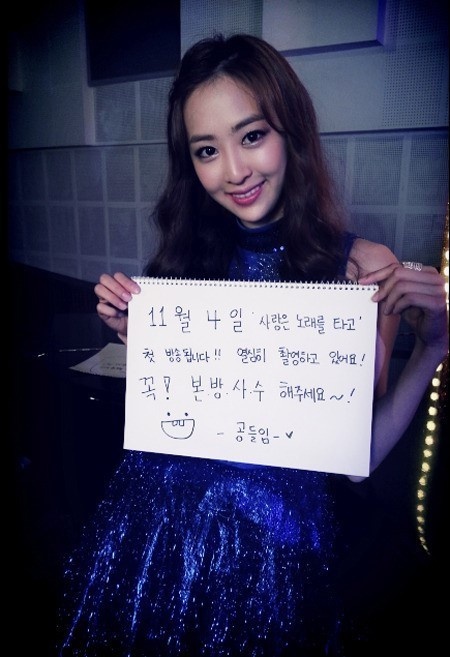 11월 4일 '사랑은 노래를 타고'
첫 방송됩니다!! 열심히 촬영하고 있어요!
꼭! 본.방.사.수 해주세요~!
- 공들임 - ♥